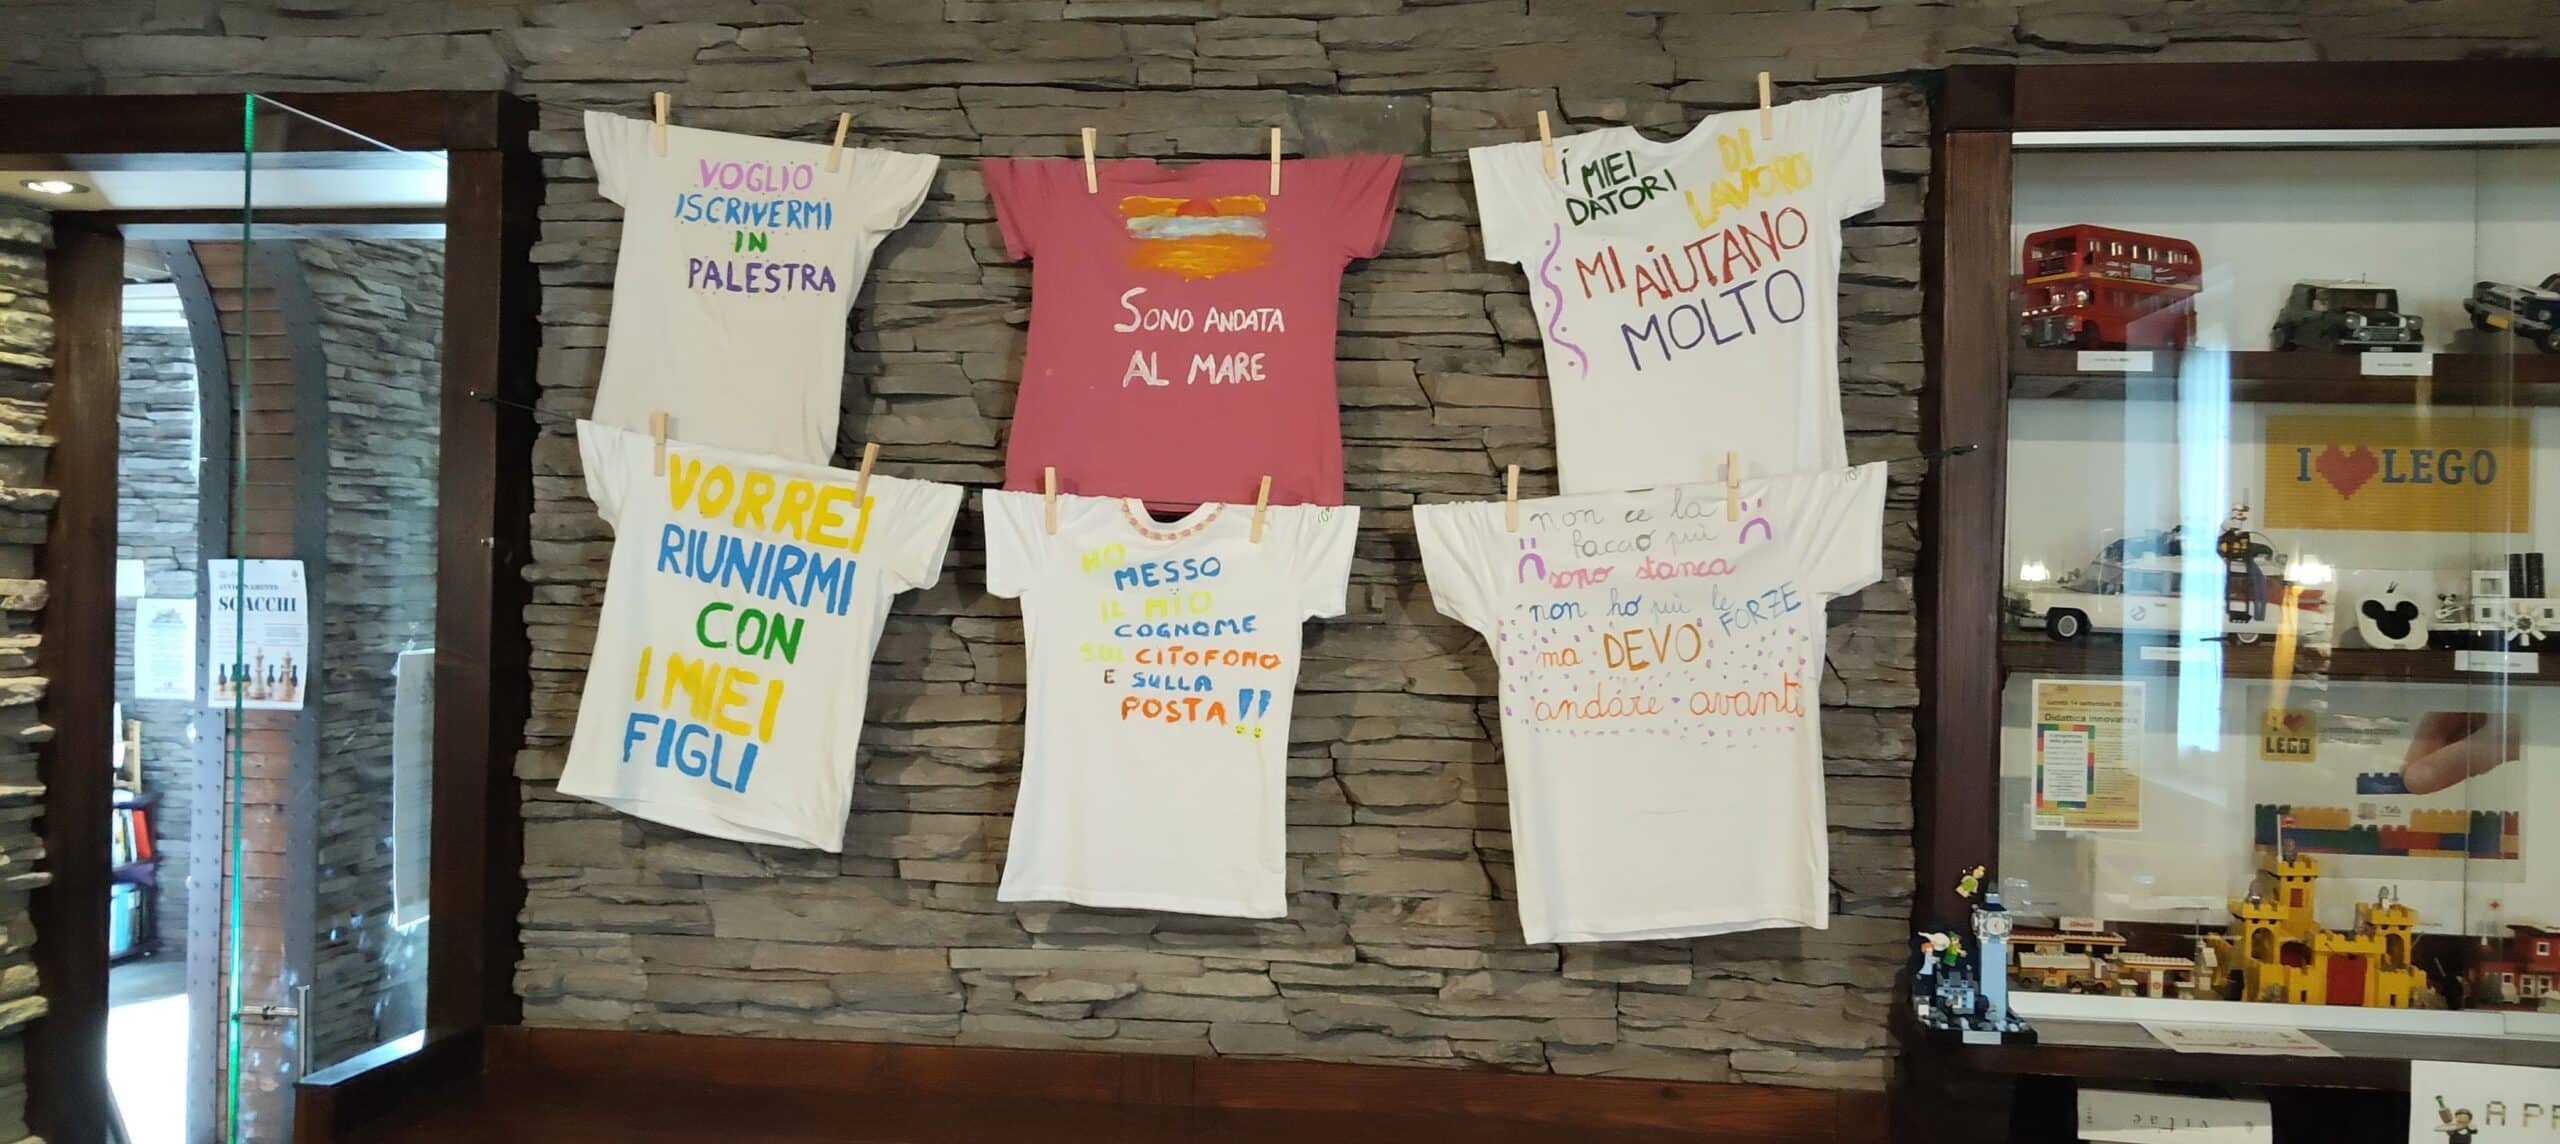 VOGLIO
ISCRIVERMI
IN
PALESTRA
SONO ANDATA
AL MARE
I MIEI
DATORI
DI
LAVORO
MI AIUTANO
MOLTO
VORREI
RIUNIRMI
CON
I MIEI
FIGLI
HO
MESSO
IL MIO
COGNOME
SUL CITOFONO
E SULLA
POSTA!!
non ce la
faccio più
sono stanca
non ho più le
FORZE
ma DEVO
andare avanti
SCACCHI
I LEGO
Didattica innovativa
I
LEGO